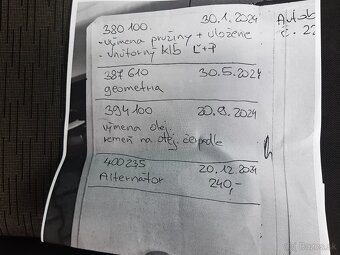 380 100. 30.1.2024
- výmena pružiny + uloženie
- vnútorný kĺb Ľ+P
387 610 30.5.2024
geometria
394 100 20.9.2024
výmena olej.
remeň na olej. čerpadle
400 235 20.12.2024
Alternátor 240,-
Autob
č. 22
bazos.sk